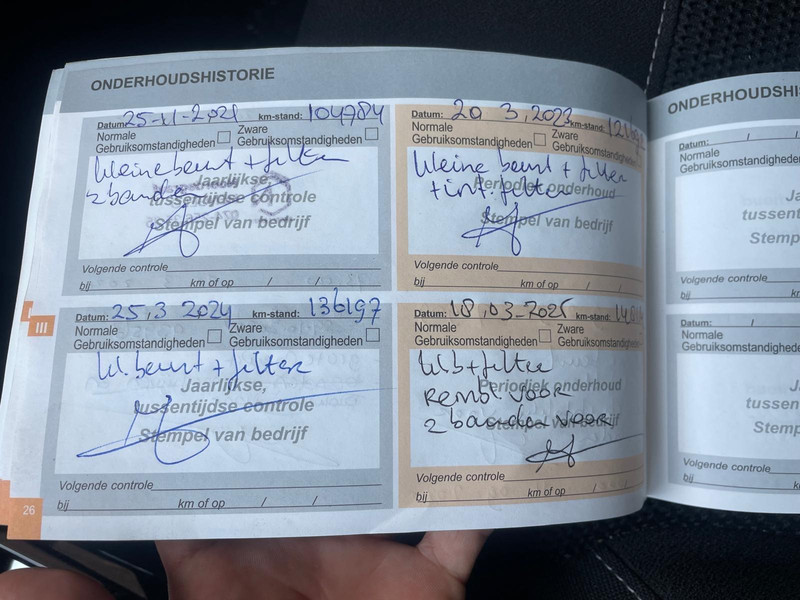 ONDERHOUDSHISTORIE
Datum: 25-11-2021 km-stand: 104784
Normale Gebruiksomstandigheden
Zware
kleine beurt + filter
2 banden
Jaarlijkse,
tussentijdse controle
Stempel van bedrijf
Volgende controle
bij km of op / /
Datum: 20 3, 2023 km-stand:
Normale Gebruiksomstandigheden
Zware Gebruiksomstandigheden
kleine beurt + filter
+ int. filter
Periodiek onderhoud
Stempel van bedrijf
Volgende controle
bij km of op / /
III
Datum: 25,3 2024 km-stand: 136197
Normale Gebruiksomstandigheden
Zware Gebruiksomstandigheden
kl. beurt + filter
Jaarlijkse,
tussentijdse controle
Stempel van bedrijf
Volgende controle
bij km of op / /
Datum: 18,03-2025 km-stand:
Normale Gebruiksomstandigheden
Zware Gebruiksomstandigheden
kl b + filter
Periodiek onderhoud
Rembl voor
2 banden voor
Stempel van bedrijf
Volgende controle
bij km of op / /
26
ONDERHOUDSHI
Datum: / /
Normale
Gebruiksomstandighede
Ja
tussen
Stemp
Volgende controle
bij
Datum: / /
Normale
Gebruiksomstandighede
Ja
tussen
Stemp
Volgende controle
bij